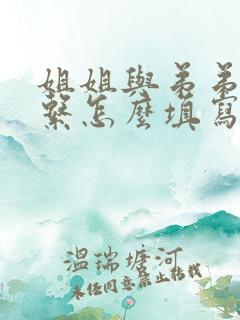 姐姐與弟弟
繫怎麼填寫
溫瑞塘河
未经同意禁止转载